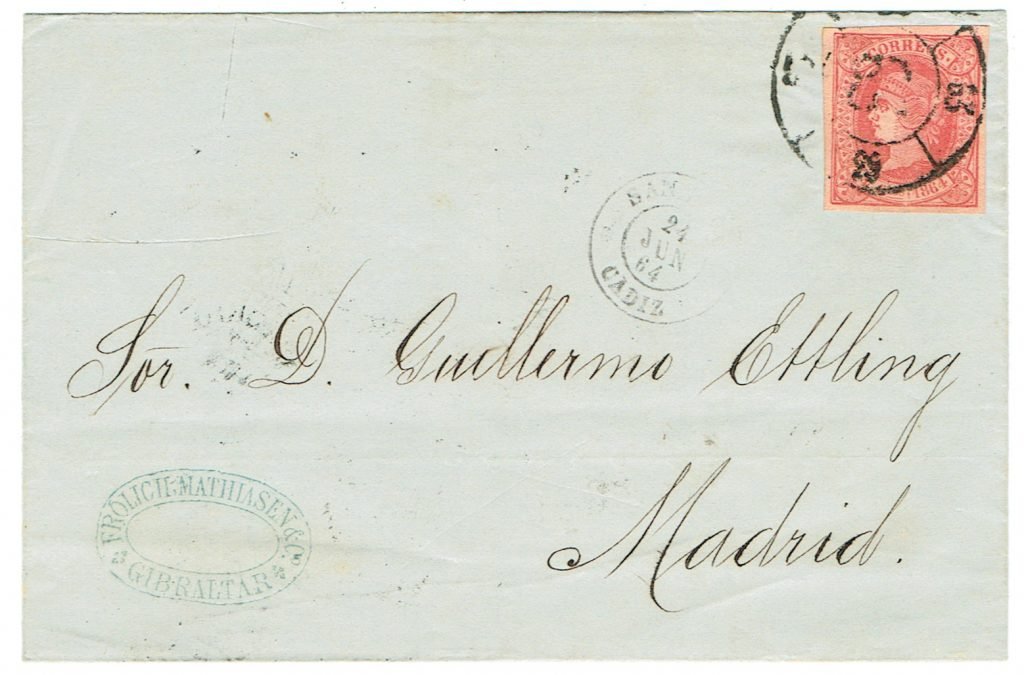 CORREOS.
1864
63
63
SAN
24
JUN
64
CADIZ
Sõr. D. Guillermo Ettling
Madrid.
FRÖLICH, MATHIASEN & Co
GIBRALTAR